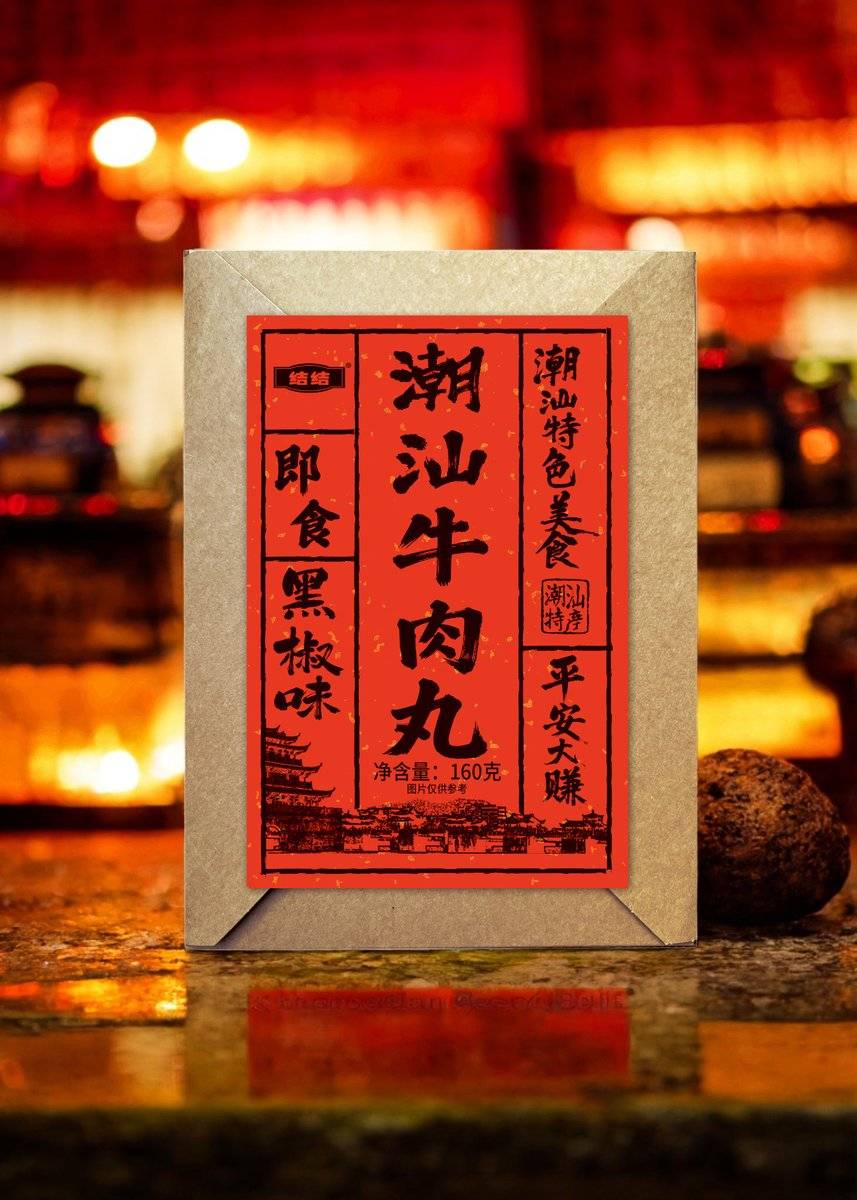 结结
即食
黑椒味
潮汕牛肉丸
净含量：160克
图片仅供参考
潮汕特色美食
潮汕特产
平安大赚